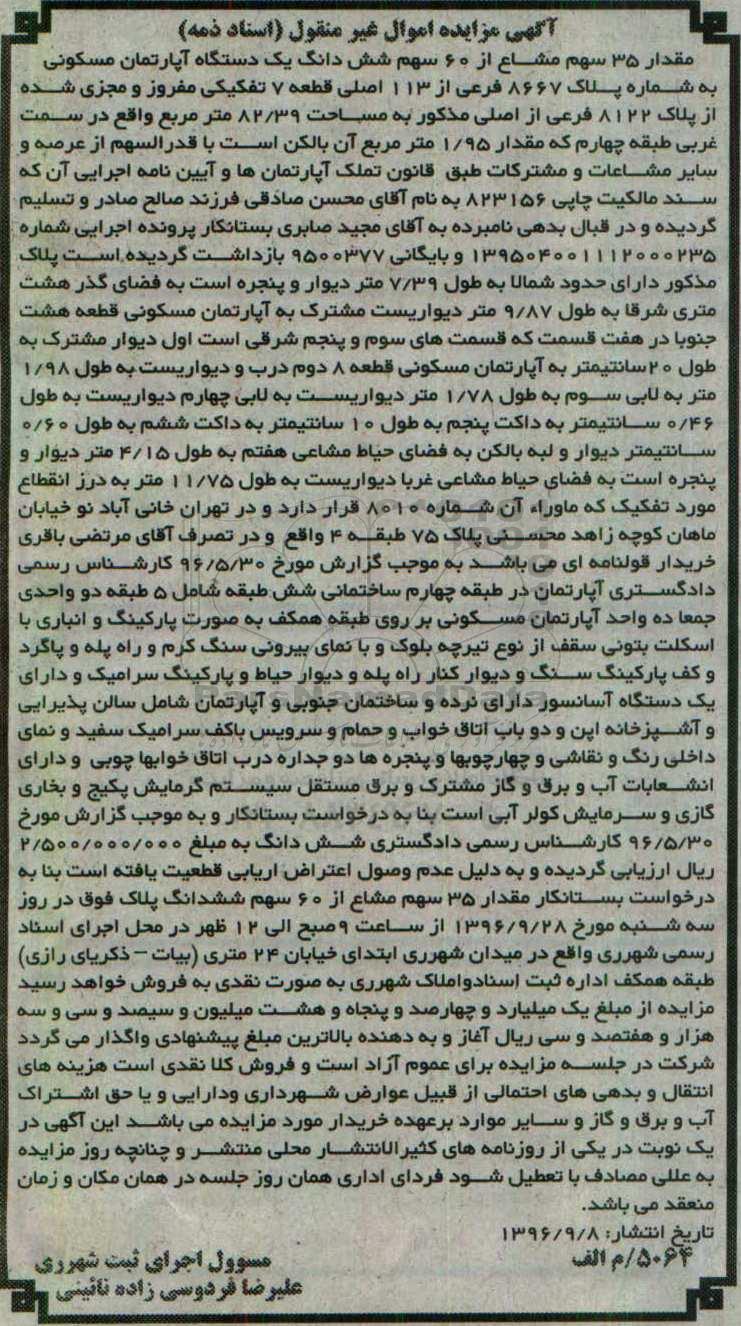 آگهی مزایده اموال غیر منقول (اسناد ذمه)
مقدار ۳۵ سهم مشاع از ۶۰ سهم شش دانگ یک دستگاه آپارتمان مسکونی
به شماره پلاک ۸۶۶۷ فرعی از ۱۱۳ اصلی قطعه ۷ تفکیکی مفروز و مجزی شده
از پلاک ۸۱۲۲ فرعی از اصلی مذکور به مساحت ۸۲/۳۹ متر مربع واقع در سمت
غربی طبقه چهارم که مقدار ۱/۹۵ متر مربع آن بالکن است با قدرالسهم از عرصه و
سایر مشاعات و مشترکات طبق قانون تملک آپارتمان ها و آیین نامه اجرایی آن که
سند مالکیت چاپی ۸۲۳۱۵۶ به نام آقای محسن صادقی فرزند صالح صادر و تسلیم
گردیده و در قبال بدهی نامبرده به آقای مجید صابری بستانکار پرونده اجرایی شماره
۱۳۹۵۰۴۰۰۱۱۱۲۰۰۰۲۳۵ و بایگانی ۹۵۰۰۳۷۷ بازداشت گردیده است پلاک
مذکور دارای حدود شمالا به طول ۷/۳۹ متر دیوار و پنجره است به فضای گذر هشت
متری شرقا به طول ۹/۸۷ متر دیواریست مشترک به آپارتمان مسکونی قطعه هشت
جنوبا در هفت قسمت که قسمت های سوم و پنجم شرقی است اول دیوار مشترک به
طول ۲۰سانتیمتر به آپارتمان مسکونی قطعه ۸ دوم درب و دیواریست به طول ۱/۹۸
متر به لابی سوم به طول ۱/۷۸ متر دیواریست به لابی چهارم دیواریست به طول
۰/۴۶ سانتیمتر به داکت پنجم به طول ۱۰ سانتیمتر به داکت ششم به طول ۰/۶۰
سانتیمتر دیوار و لبه بالکن به فضای حیاط مشاعی هفتم به طول ۴/۱۵ متر دیوار و
پنجره است به فضای حیاط مشاعی غربا دیواریست به طول ۱۱/۷۵ متر به درز انقطاع
مورد تفکیک که ماوراء آن شماره ۸۰۱۰ قرار دارد و در تهران خانی آباد نو خیابان
ماهان کوچه زاهد محسنی پلاک ۷۵ طبقه ۴ واقع و در تصرف آقای مرتضی باقری
خریدار قولنامه ای می باشد به موجب گزارش مورخ ۹۶/۵/۳۰ کارشناس رسمی
دادگستری آپارتمان در طبقه چهارم ساختمانی شش طبقه شامل ۵ طبقه دو واحدی
جمعا ده واحد آپارتمان مسکونی بر روی طبقه همکف به صورت پارکینگ و انباری با
اسکلت بتونی سقف از نوع تیرچه بلوک و با نمای بیرونی سنگ کرم و راه پله و پاگرد
و کف پارکینگ سنگ و دیوار کنار راه پله و دیوار حیاط و پارکینگ سرامیک و دارای
یک دستگاه آسانسور دارای نرده و ساختمان جنوبی و آپارتمان شامل سالن پذیرایی
و آشپزخانه اپن و دو باب اتاق خواب و حمام و سرویس باکف سرامیک سفید و نمای
داخلی رنگ و نقاشی و چهارچوبها و پنجره ها دو جداره درب اتاق خوابها چوبی و دارای
انشعابات آب و برق و گاز مشترک و برق مستقل سیستم گرمایش پکیج و بخاری
گازی و سرمایش کولر آبی است بنا به درخواست بستانکار و به موجب گزارش مورخ
۹۶/۵/۳۰ کارشناس رسمی دادگستری شش دانگ به مبلغ ۲/۵۰۰/۰۰۰/۰۰۰
ریال ارزیابی گردیده و به دلیل عدم وصول اعتراض اریابی قطعیت یافته است بنا به
درخواست بستانکار مقدار ۳۵ سهم مشاع از ۶۰ سهم ششدانگ پلاک فوق در روز
سه شنبه مورخ ۱۳۹۶/۹/۲۸ از ساعت ۹صبح الی ۱۲ ظهر در محل اجرای اسناد
رسمی شهرری واقع در میدان شهرری ابتدای خیابان ۲۴ متری (بیات – ذکریای رازی)
طبقه همکف اداره ثبت اسنادواملاک شهرری به صورت نقدی به فروش خواهد رسید
مزایده از مبلغ یک میلیارد و چهارصد و پنجاه و هشت میلیون و سیصد و سی و سه
هزار و هفتصد و سی ریال آغاز و به دهنده بالاترین مبلغ پیشنهادی واگذار می گردد
شرکت در جلسه مزایده برای عموم آزاد است و فروش کلا نقدی است هزینه های
انتقال و بدهی های احتمالی از قبیل عوارض شهرداری ودارایی و یا حق اشتراک
آب و برق و گاز و سایر موارد برعهده خریدار مورد مزایده می باشد این آگهی در
یک نوبت در یکی از روزنامه های کثیرالانتشار محلی منتشر و چنانچه روز مزایده
به عللی مصادف با تعطیل شود فردای اداری همان روز جلسه در همان مکان و زمان
منعقد می باشد.
تاریخ انتشار: ۱۳۹۶/۹/۸
۵۰۶۴/م الف
مسوول اجرای ثبت شهرری
علیرضا فردوسی زاده نائینی